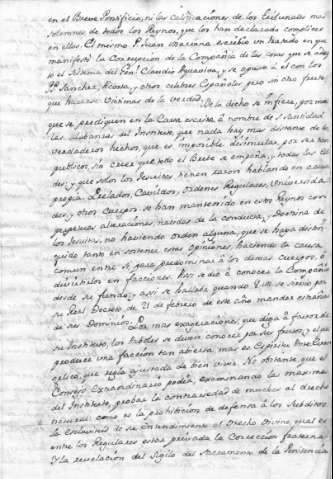 en el Breve Pontificio, ni las calificaciones de los tribunales mas
solemnes de todos los Reynos, que los han declarado complices
en ellos. El mismo P. Juan Mariana escribio un tratado en que
manifestó la Corrupcion de la Compañia de las cosas que se
el sistema del Gen.l Claudio Aquaviva, y se opuso á el con los
PP. Sanchez, Acosta, y otros celebres Españoles pero sin otro fruto,
que hacerse victimas de la verdad.
De lo dicho se infiere, por mas
que se prediquen en la Carta escrita á nombre de su Santidad
las alabanzas del Instituto, que nada hay mas distante de los
verdaderos hechos, que es imposible disimular, por ser tan
publicos, sin creer que todo el Orbe se empeña, y todas las eda
des; y que solos los Jesuitas tienen razon hablando en causa
propia. Prelados, Cavildos, ordenes Regulares, Universida
des, y otros Cuerpos se han mantenido en estos Reynos con
perpetuas alteraciones, nacidas de la conducta, y Doctrina de
los Jesuitas, no haviendo orden alguna, que se haya distin
guido tanto en sostener estas opiniones, haciendo la causa
comun entre sí, para predominar á los demas Cuerpos, ó
dividirlos en facciones. Asi se dió á conocer la Compañia
desde su fundaz.n y asi se hallaba quando V.M. se sirvió por
su Real Decreto de 27 de febrero de este año mandar estrañarla
de sus Dominios. Por mas exageraciones, que diga á favor de
su Instituto, los arboles se deven conocer por sus frutos, y el que
produce una faccion tan abierta mas es Espiritu que Evan
gelico, que regla ajustada de bien vivir. No obstante que el
Consejo Extraordinario podia, examinando las maximas
del Instituto, probar la contrariedad de muchas al derecho
natural como es la prohibicion de defensa á los Subditos
la esclavitud de su Entendimiento al Derecho Divino, qual es
entre los Regulares estar privada la Correccion fraterna
y la revelacion del Sigilo del Sacramento de la Penitencia